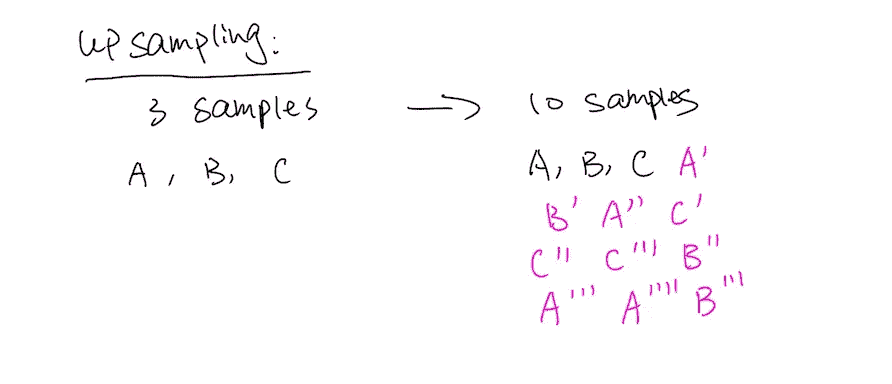 upsampling:
3 samples → 10 samples
A, B, C
A, B, C A'
B' A'' C'
C'' C''' B''
A''' A'''' B'''